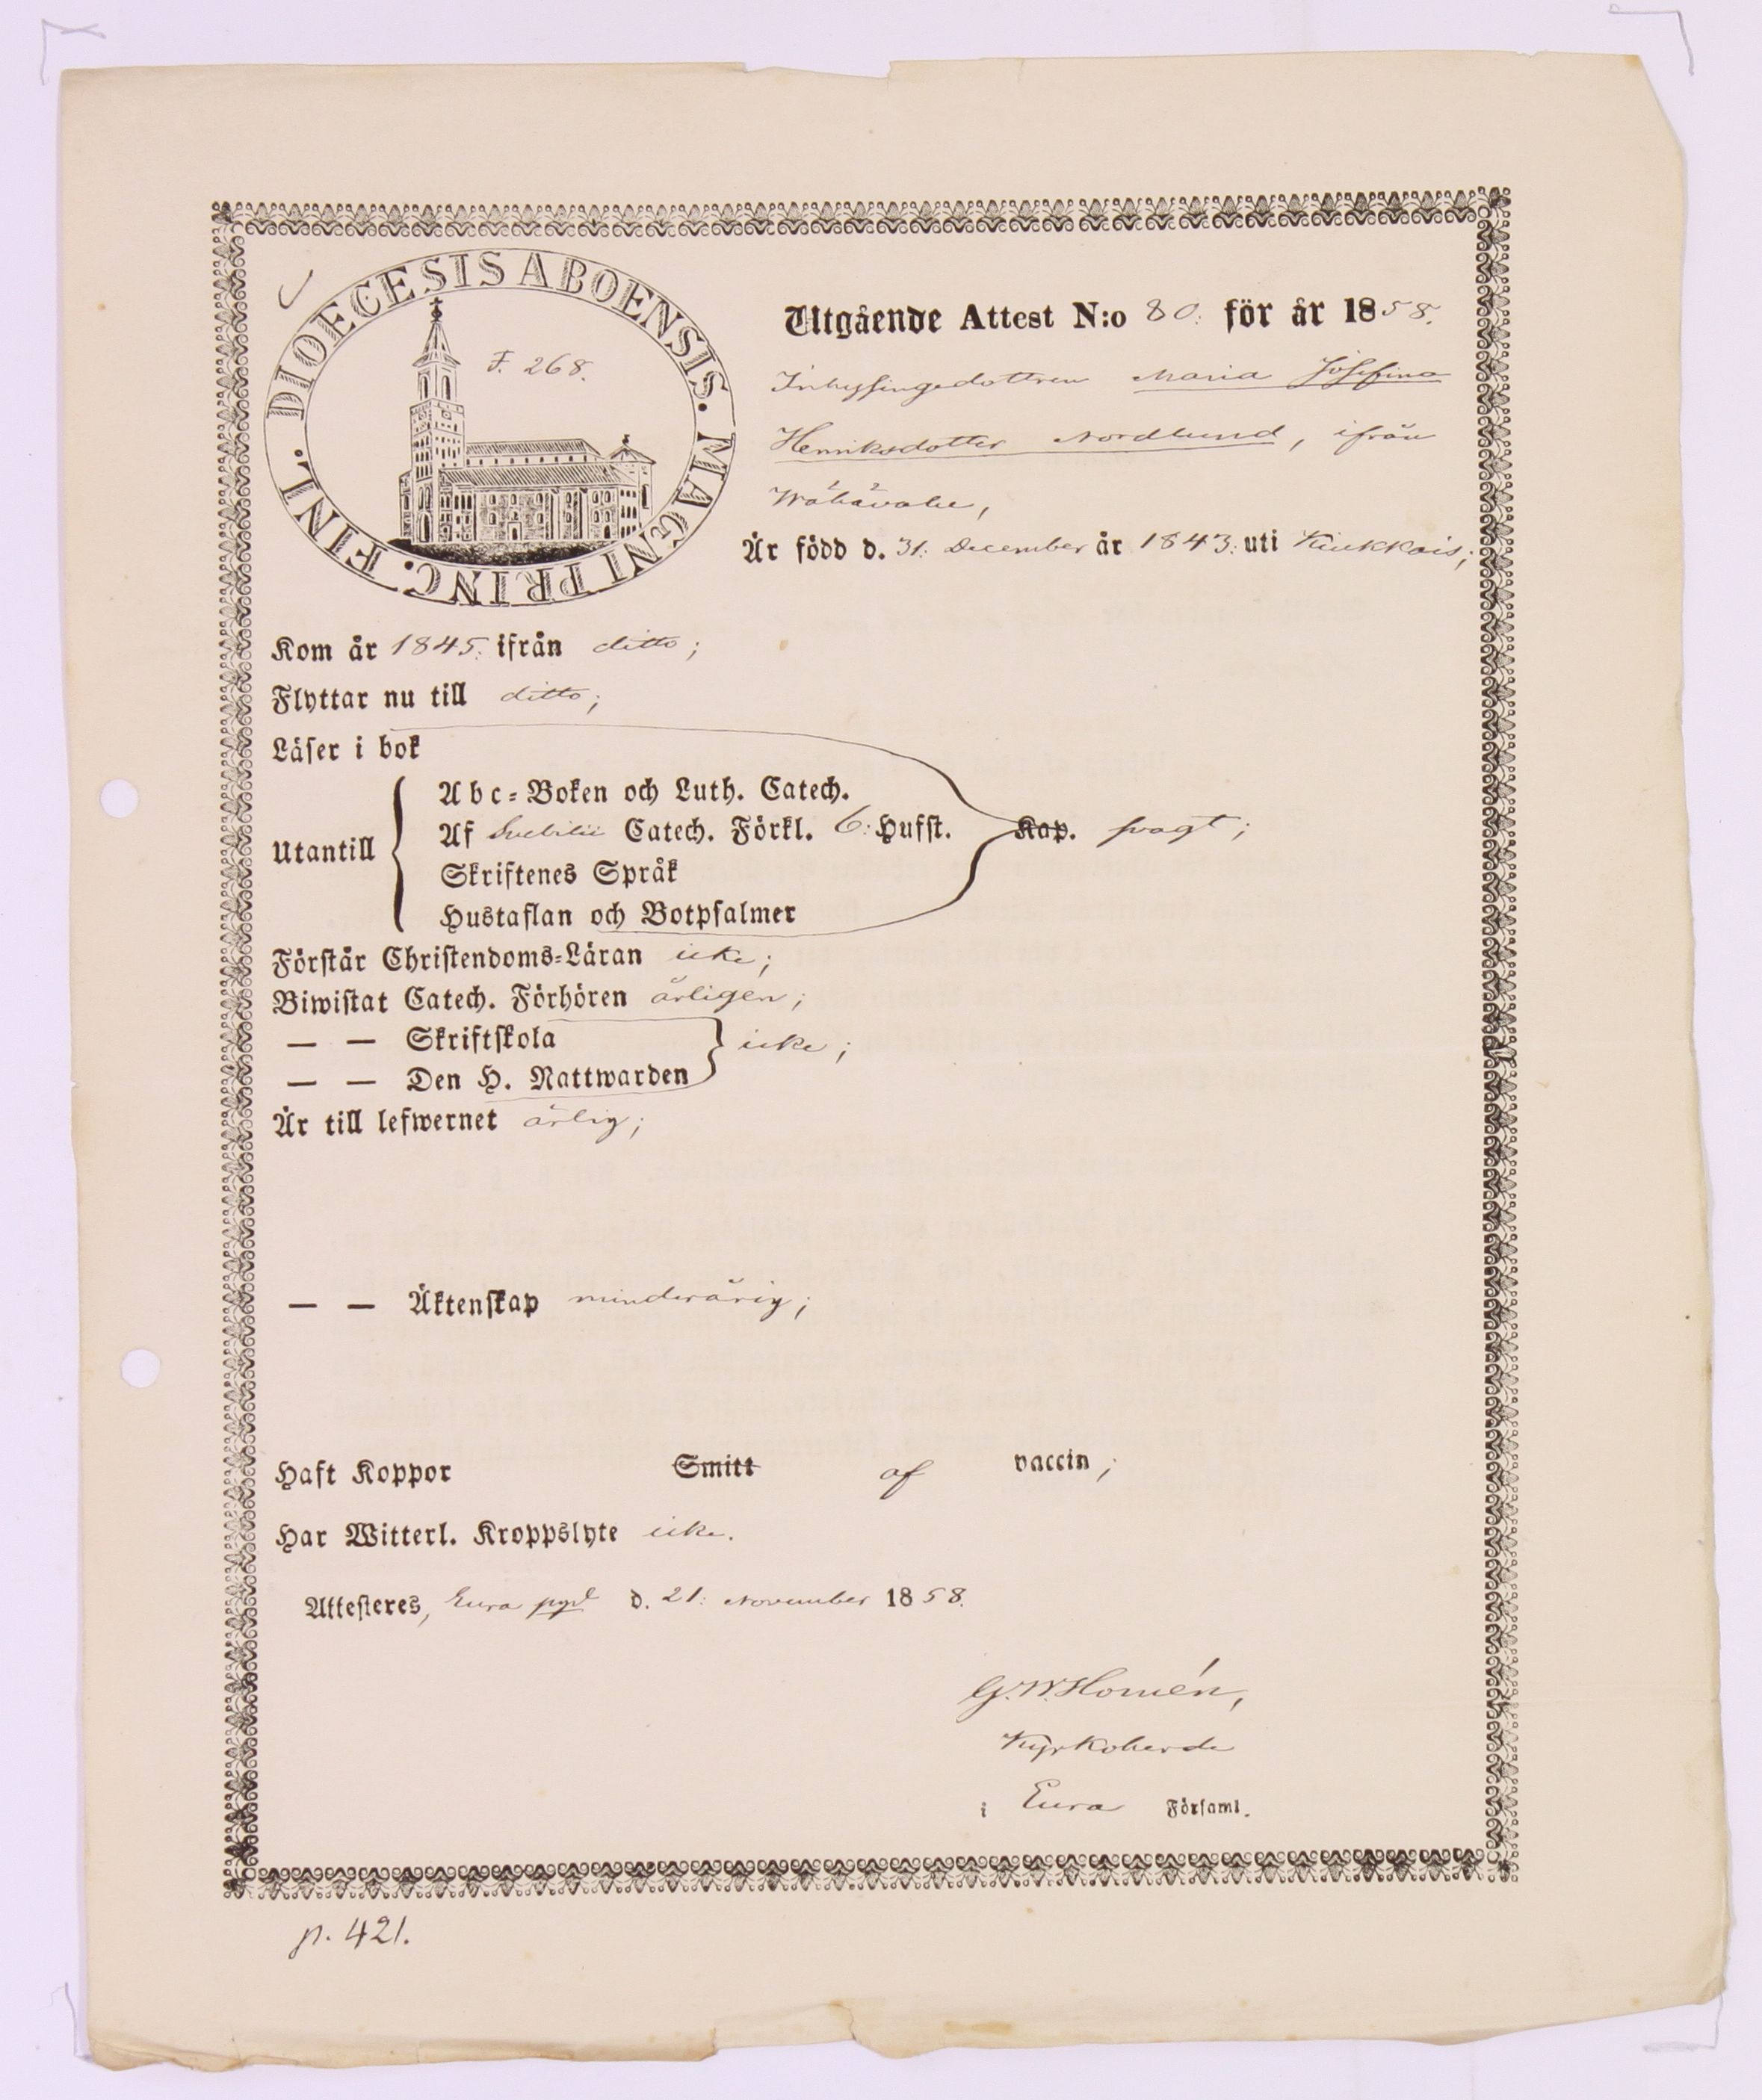 DIOECESIS ABOENSIS. MAGNI PRINC. FINL.
F. 268.
Utgående Attest N:o 80. för år 1858.
Inhysingedottren Maria Josefina
Henriksdotter Nordlund, ifrån
Är född d. 31: December år 1843: uti Kiukkais;
Kom år 1845: ifrån ditto;
Flyttar nu till ditto;
Läser i bok
Utantill
Abc-Boken och Luth. Catech.
Af Svebilii Catech. Förkl. 6: Hufst. Kap. svagt;
Skriftenes Språk
Hustaflan och Botpsalmer
Förstår Christendoms-Läran icke;
Biwistat Catech. Förhören årligen;
— — Skriftskola
icke;
— — Den H. Nattwarden
Är till lefwernet ärlig;
— — Äktenskap minderårig;
Haft Koppor Smitt af vaccin;
Har Witterl. Kroppslyte icke.
Attesteres, Eura d. 21: November 1858.
G. W. Homén,
Kyrkoherde
i Eura Församl.
p. 421.